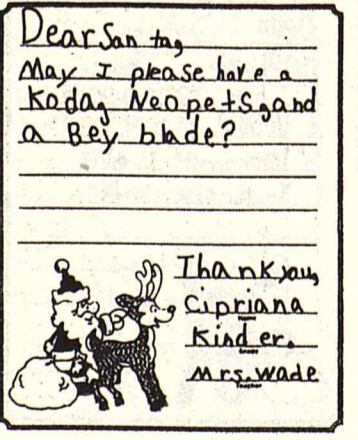 Dear San ta,
May I please have a
Koda, Neopets, and
a Bey blade?
Thank you,
Cipriana
Name
Kinder.
Grade
Mrs. Wade
Teacher